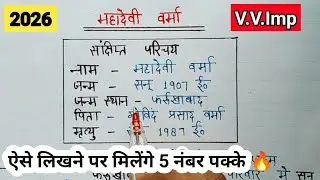 2026
महादेवी वर्मा
V.V.Imp
संक्षिप्त परिचय
नाम - महादेवी वर्मा
जन्म - सन् 1907 ई०
जन्म स्थान - फर्रुखाबाद
पिता - गोविंद प्रसाद वर्मा
मृत्यु - 1987 ई०
ऐसे लिखने पर मिलेंगे 5 नंबर पक्के 🔥